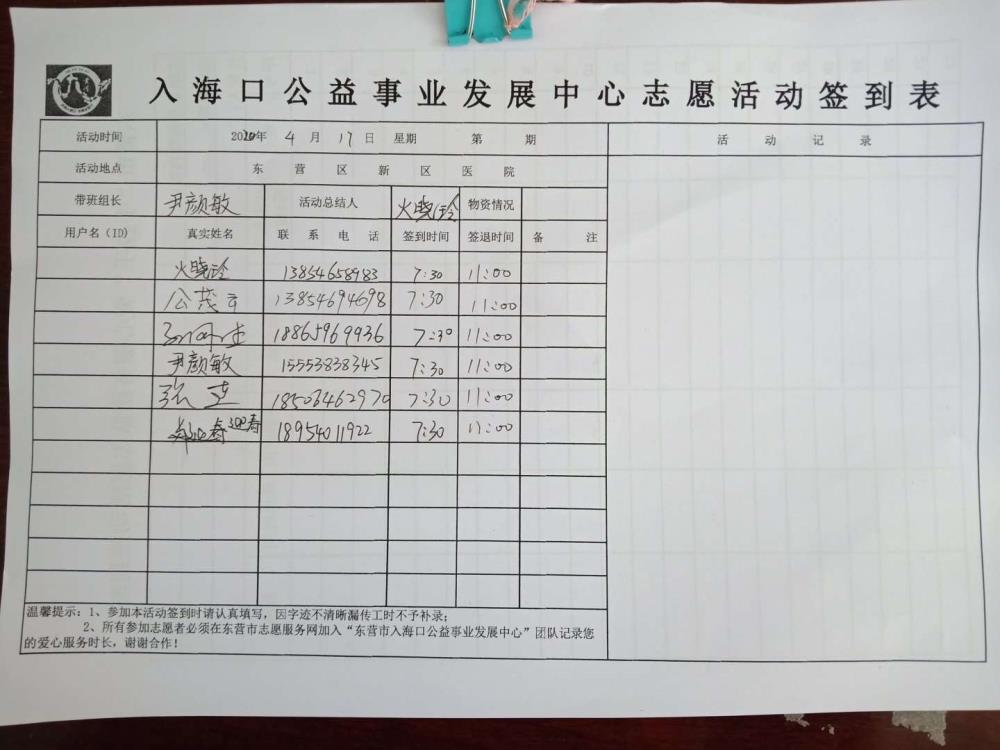 入海口公益事业发展中心志愿活动签到表
活动时间 2020年 4 月 17 日 星期 第 期 活动记录
活动地点 东营区新区医院
带班组长 尹颜敏 活动总结人 火晓玲 物资情况
用户名(ID) 真实姓名 联系电话 签到时间 签退时间 备注
火晓玲 13854658983 7:30 11:00
公茂云 13854694698 7:30 11:00
18865969936 7:30 11:00
尹颜敏 15553838345 7:30 11:00
张莲 18503462970 7:30 11:00
迎春 18954011922 7:30 11:00
温馨提示:1、参加本活动签到时请认真填写,因字迹不清晰漏传工时不予补录;
2、所有参加志愿者必须在东营市志愿服务网加入“东营市入海口公益事业发展中心”团队记录您
的爱心服务时长,谢谢合作!